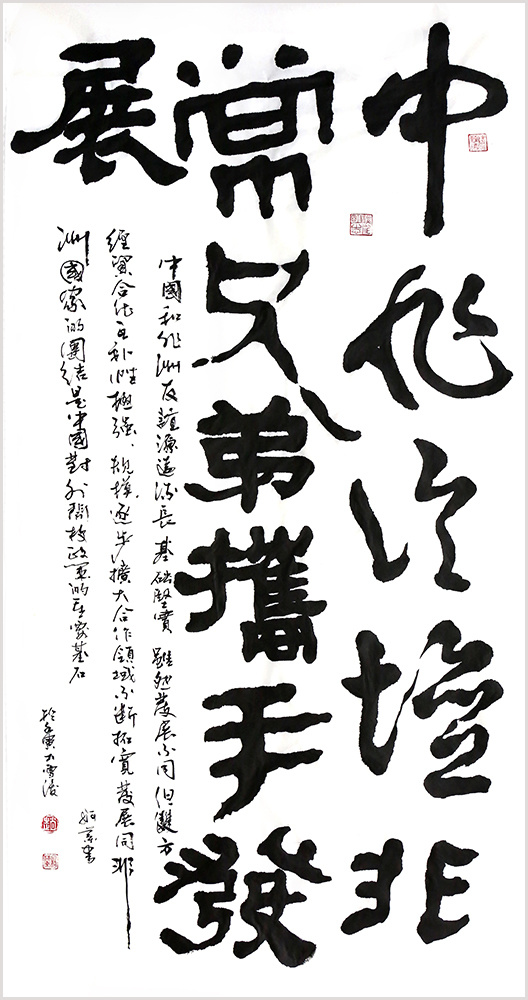 中非论壇非
常兄弟攜手發
展
中國和非洲友誼源遠流長基礎堅實雖然發展不同但雙方
經貿合作互補性極強、規模逐步擴大合作領域不断拓寬發展同非
洲國家的團結是中國對外開放政策的重要基石
於壬寅大雪後
書